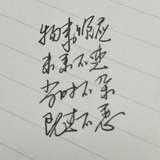 物来顺应
未来不迎
当时不杂
既过不恋